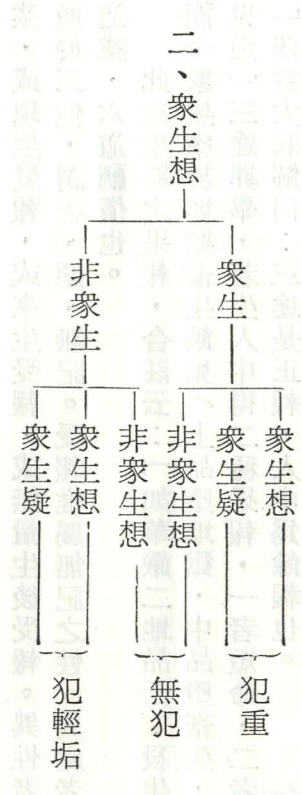 二、衆生想
衆生
非衆生
衆生想
衆生疑
非衆生想
非衆生想
衆生想
衆生疑
犯重
無犯
犯輕垢